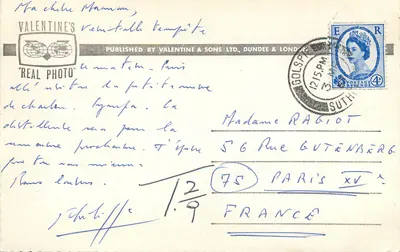 Ma chère Maman,
véritable tempête
VALENTINE'S
"REAL PHOTO"
PUBLISHED BY VALENTINE & SONS LTD., DUNDEE & LONDON
ce matin. Puis
allé visiter la petite
de charbon. Sympa. La
distillerie sera pour la
semaine prochaine. J'espère
que tu vas mieux.
Bons baisers.
Philippe
E R
POSTAGE
4D
GOLSPIE
12 15 PM
SUTH
1.2/9
Madame RAGIOT
56 RUE GUTENBERG
75 PARIS XVe
FRANCE